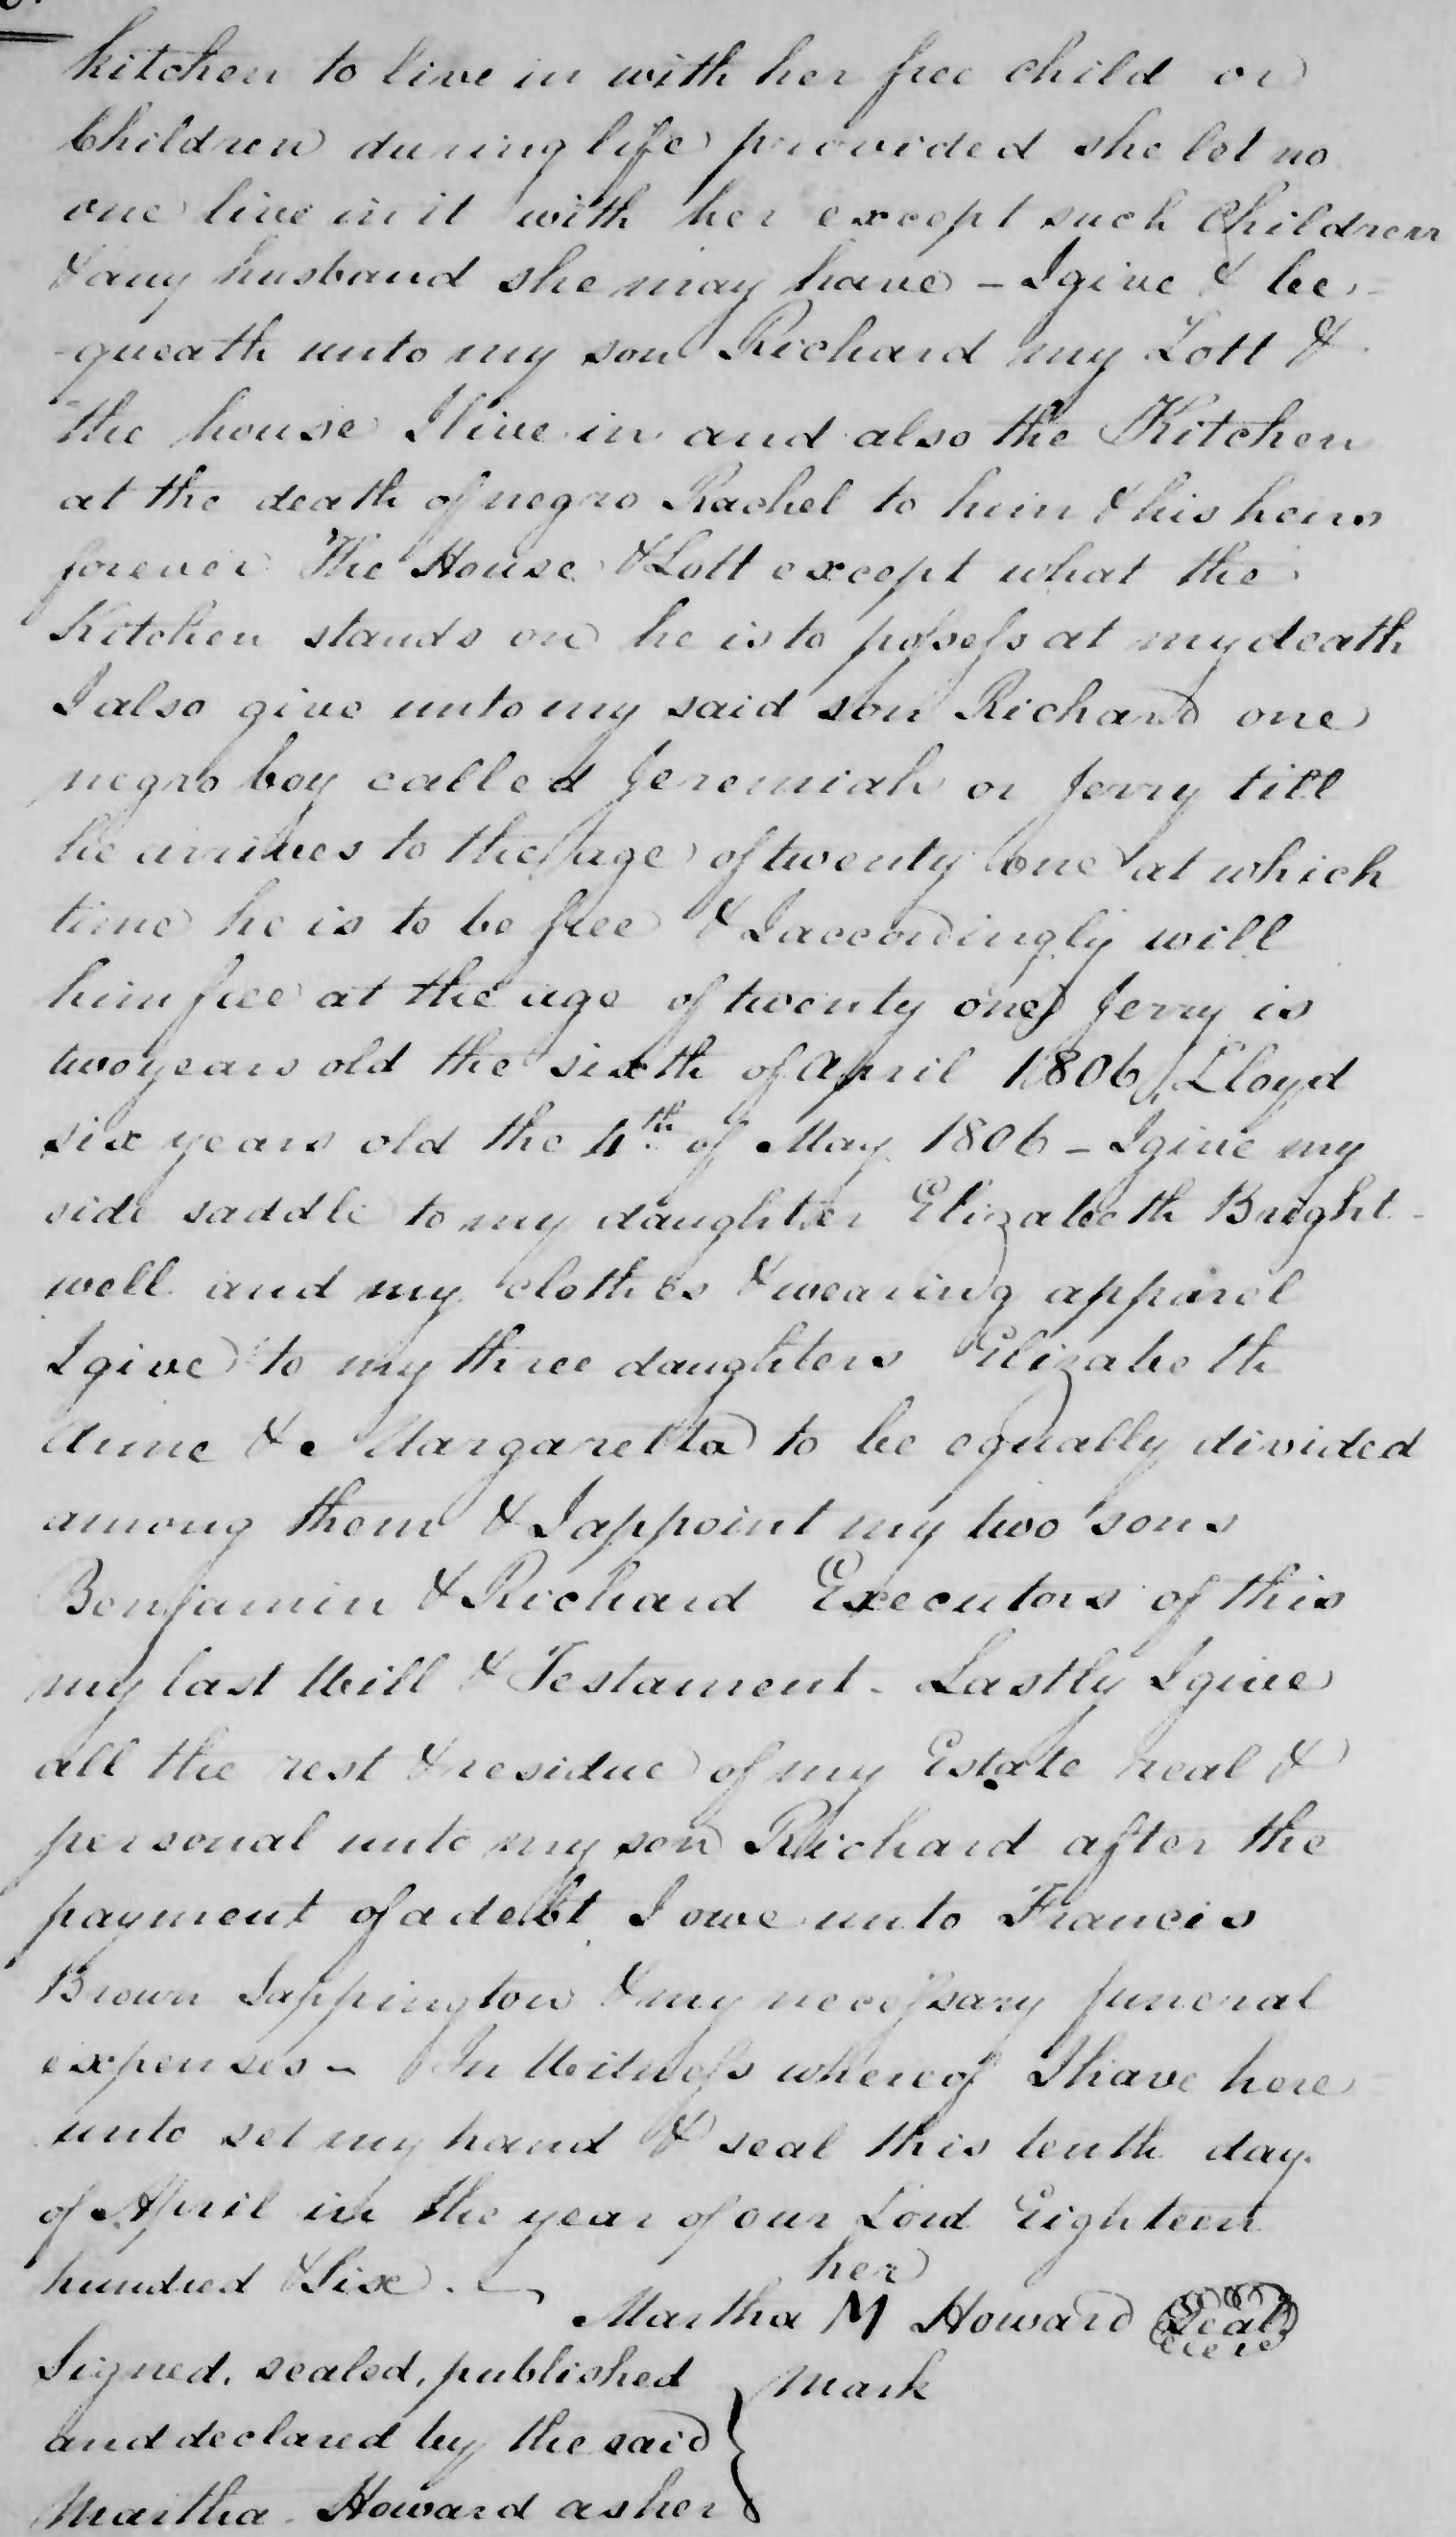 kitchen to live in with her free child or
Children during life provided she let no
one live in it with her except such Children
& any husband she may have – I give & be=
-queath unto my son Richard my Lott &
the house I live in and also the Kitchen
at the death of negro Rachel to him & his heirs
forever The House & Lott except what the
Kitchen stands on he is to possess at my death
I also give unto my said son Richard one
negro boy called Jeremiah or Jerry till
he arrives to the age of twenty one at which
time he is to be free & I accordingly will
him free at the age of twenty one) Jerry is
two years old the sixth of April 1806, Lloyd
six years old the 4th of May 1806 – I give my
side saddle to my daughter Elizabeth Bright-
well and my clothes & wearing apparel
I give to my three daughters Elizabeth
Anne & Margaretta to be equally divided
among them & I appoint my two sons
Benjamin & Richard Executors of this
my last Will & Testament - Lastly I give
all the rest & residue of my Estate real &
personal unto my son Richard after the
payment of a debt I owe unto Francis
Brown Sappington & my necessary funeral
expenses – In Witness whereof I have here=
unto set my hand & seal this tenth day
of April in the year of our Lord Eighteen
hundred & Six. –
her
Martha M Howard Seal
mark
Signed, sealed, published
and declared by the said
Martha Howard as her